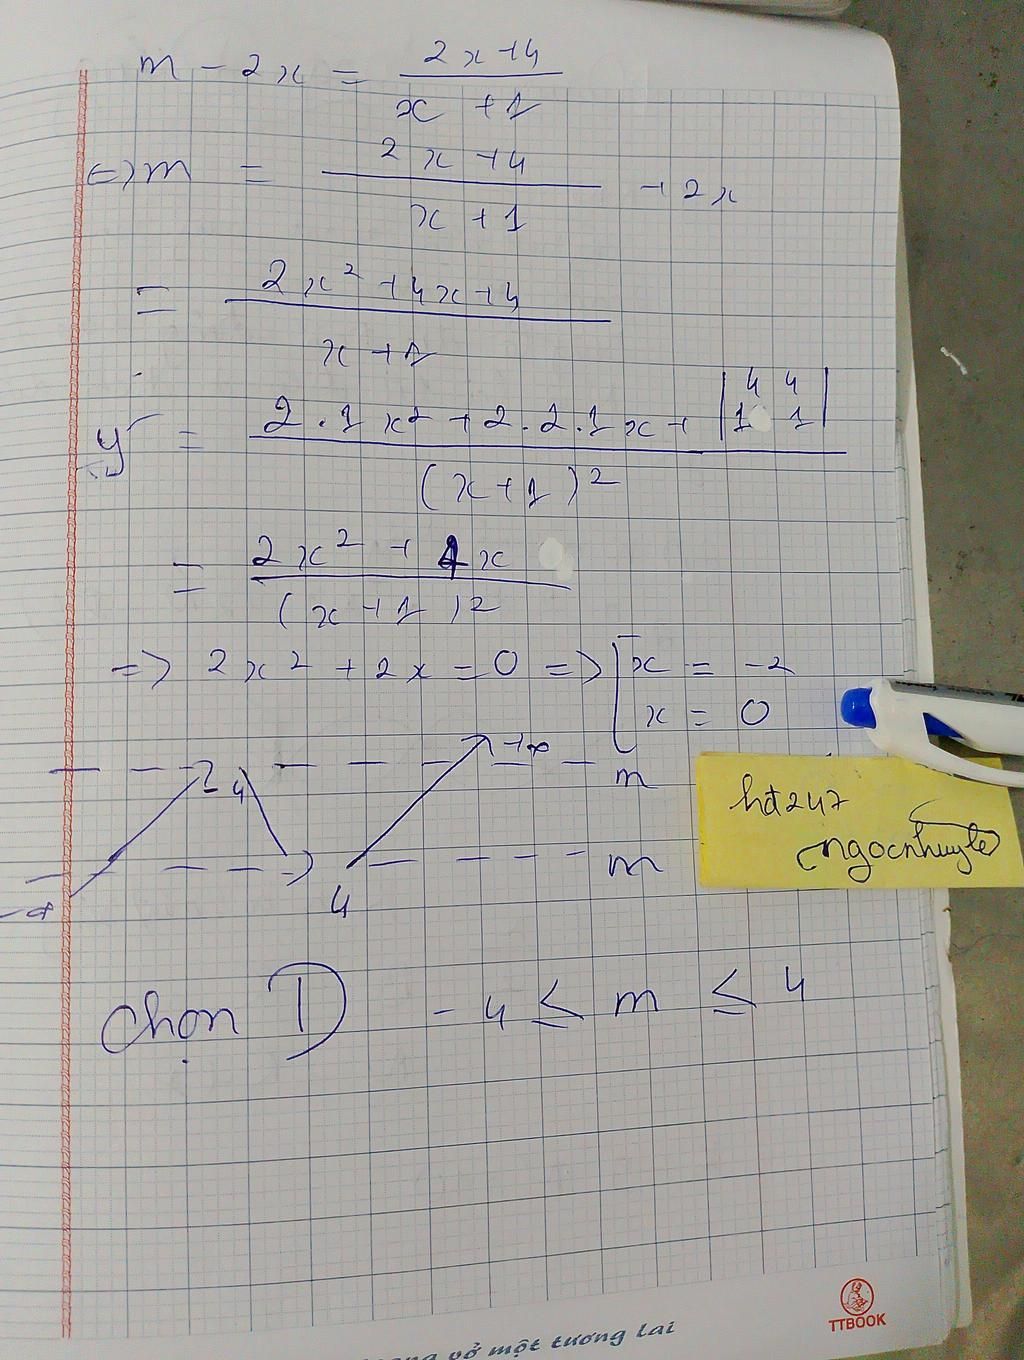 m - 2x = \frac{2x+4}{x+1}
<=> m = \frac{2x+4}{x+1} + 2x
= \frac{2x^2+4x+4}{x+1}
y' = \frac{2.1x^2+2.2.1x+\begin{vmatrix}4&4\\1&1\end{vmatrix}}{(x+1)^2}
= \frac{2x^2+4x}{(x+1)^2}
=> 2x^2 + 2x = 0 => [x = -2
x = 0
+∞
-4
m
m
-∞
4
hđ247
ngocnhuyle
Chọn D -4 ≤ m ≤ 4
vở một tương lai
TTBOOK